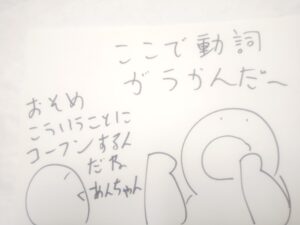 ここで動詞
がうかんだ〜
おそめ
こういうことに
コーフンするん
だね
あんちゃん